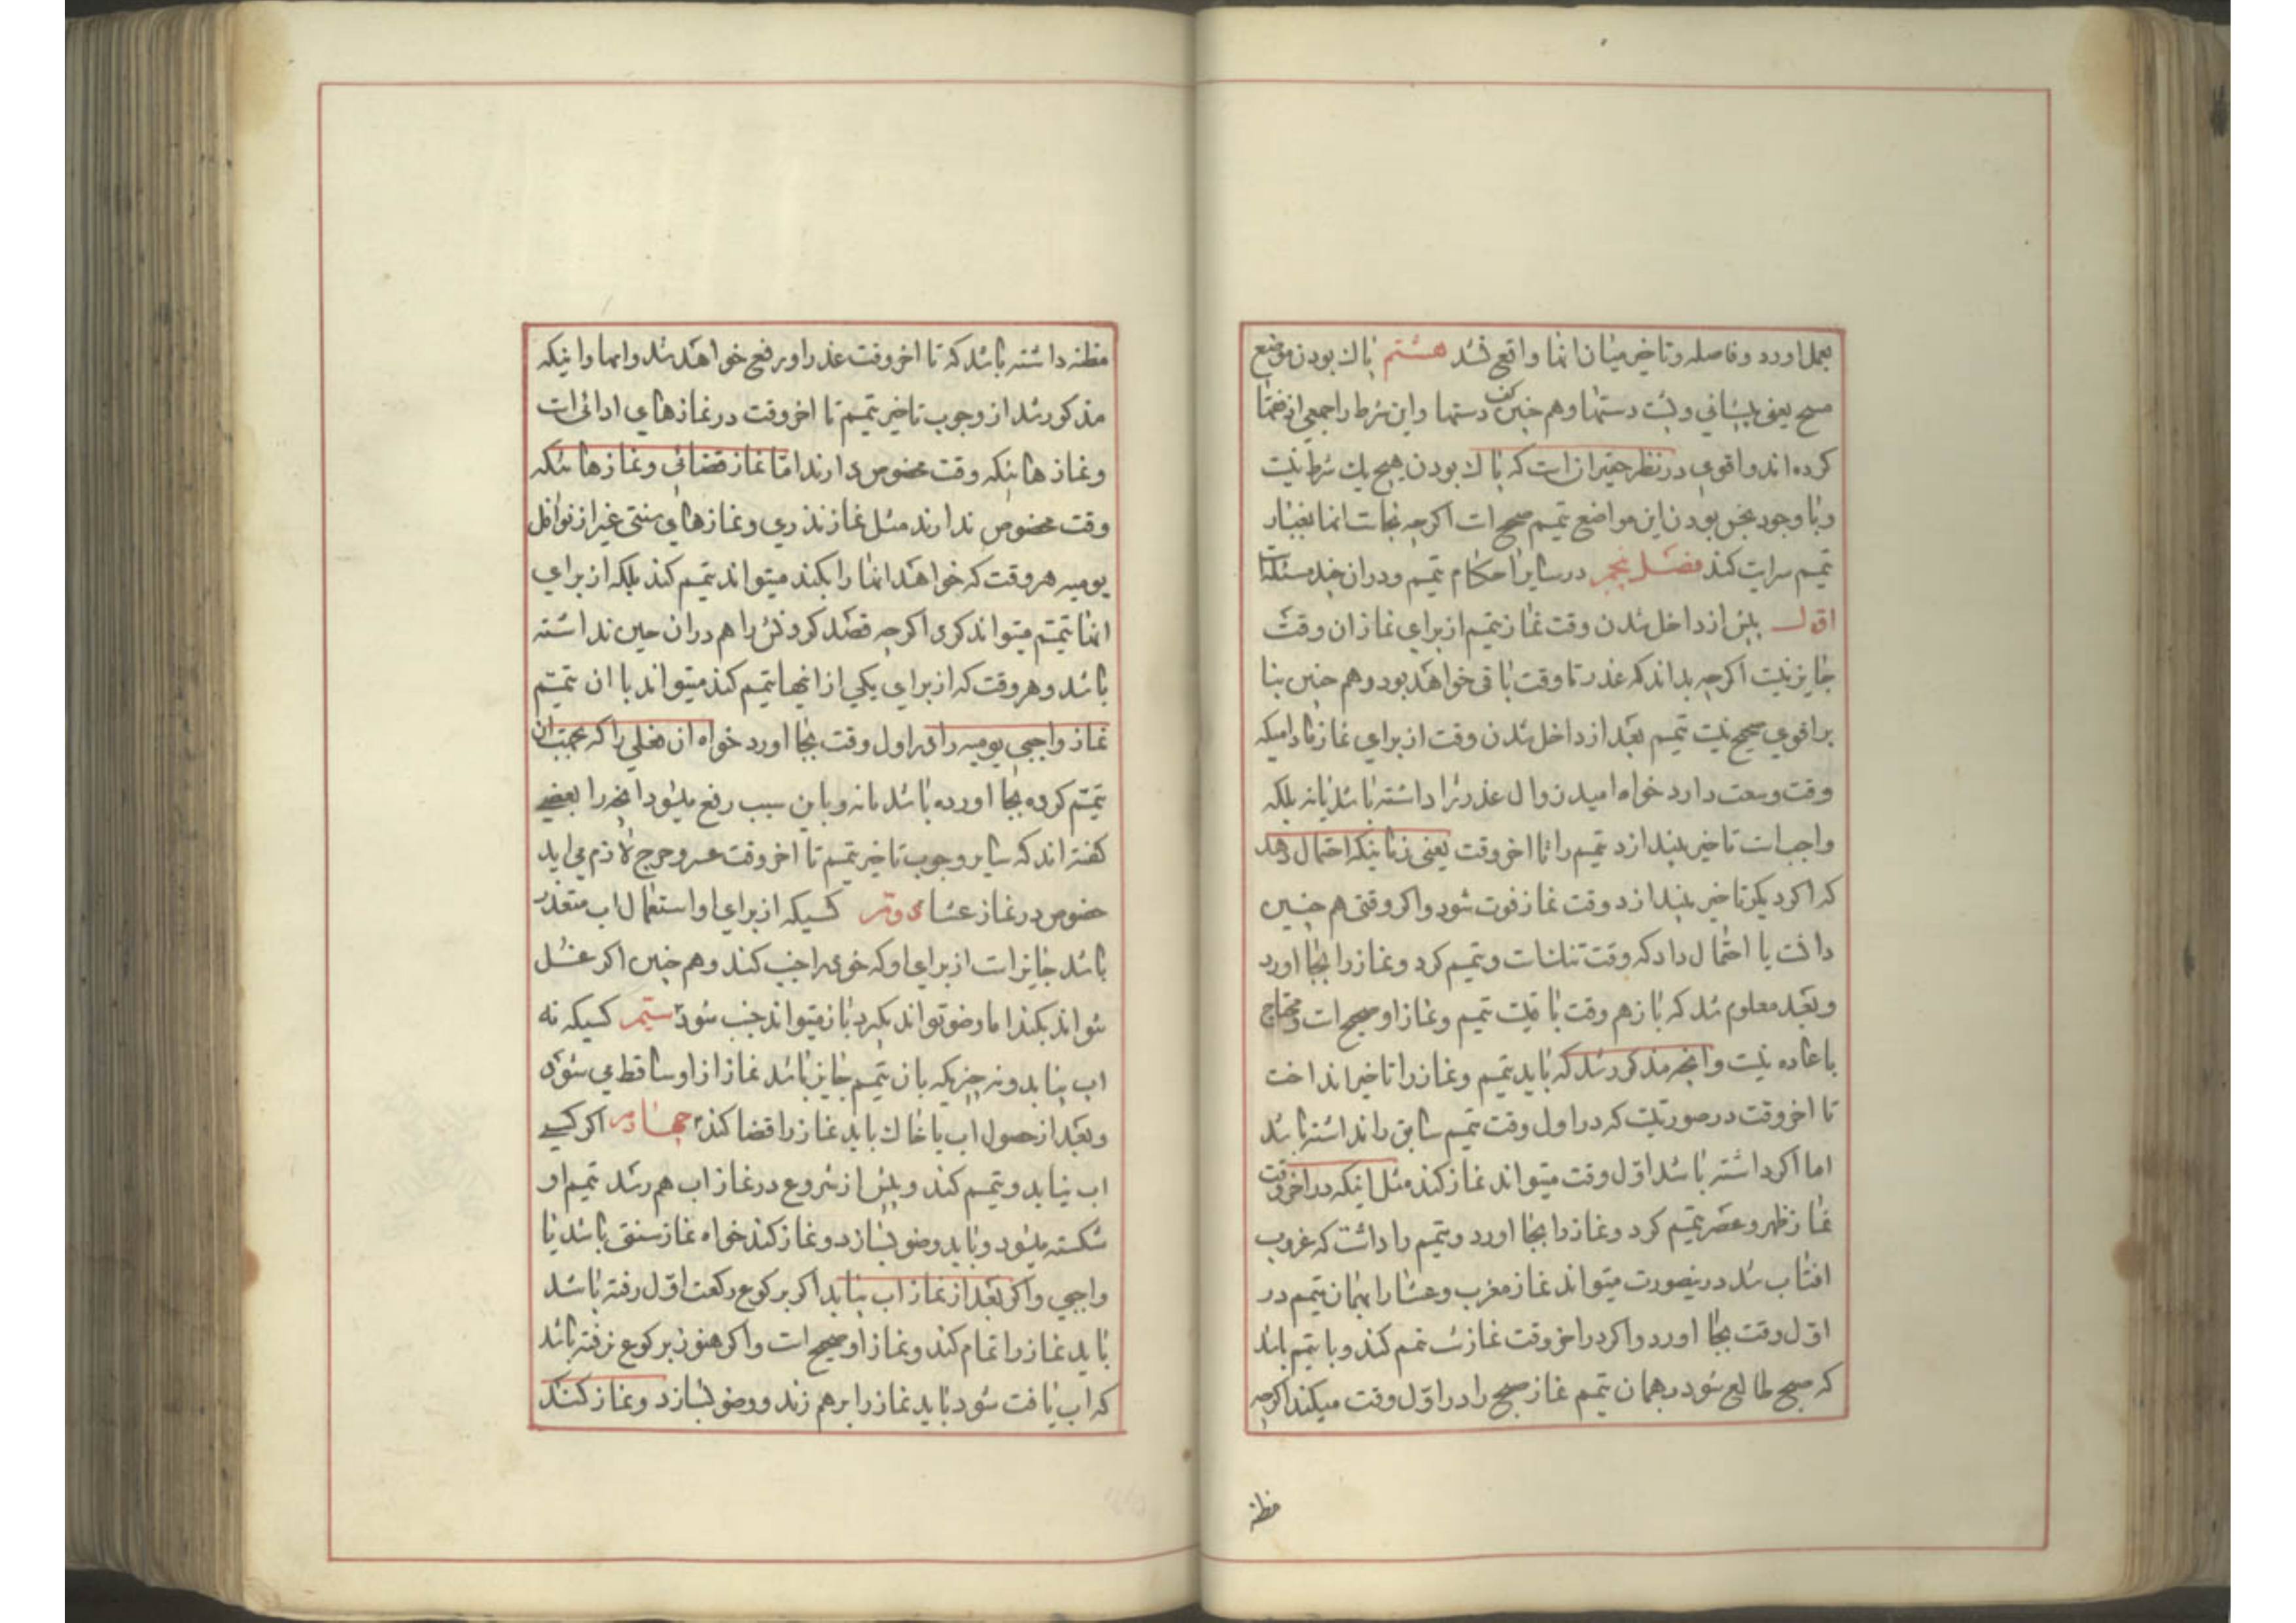 بعمل اورد و فاصله و تاخیر میان انها واقع نشد هشتم پاك بودن موضع
مسح یعنی پیشانی و پشت دستها و هم چنین کف دستها و این شرط را جمعی از فقها
کرده اند و اقوی در نظر حقیر ان است که پاك بودن هیچ یك شرط نیست
و با وجود نجس بودن این مواضع تیمم صحیح است اکرچه نجاست انها بغبار
تیمم سرایت کند فصل پنجم در سایر احکام تیمم و در ان چند مسئله است
اول پیش از داخل شدن وقت نماز تیمم از برای نماز ان وقت
جایز نیست اکرچه بداند که عذر تا وقت باقی خواهد بود و هم چنین بنا
بر اقوی صحیح نیست تیمم بعد از داخل شدن وقت از برای نماز مادامیکه
وقت وسعت دارد خواه امید زوال عذر را داشته باشد یا نه بلکه
واجب است تاخیر بیندازد تیمم را تا اخر وقت یعنی زمانیکه احتمال دهد
که اکر دیکر تاخیر بیندازد وقت نماز فوت شود و اکر وقتی هم چنین
دانست یا احتمال داد که وقت تنك است و تیمم کرد و نماز را بجا اورد
و بعد معلوم شد که باز هم وقت باقیست تیمم و نماز او صحیح است و محتاج
باعاده نیست و انچه مذکور شد که باید تیمم و نماز را تاخیر انداخت
تا اخر وقت در صورتیست که در اول وقت تیمم سابق را نداشته باشد
اما اکر داشته باشد اول وقت میتواند نماز کند مثل اینکه در اخر وقت
نماز ظهر و عصر تیمم کرد و نماز را بجا اورد و تیمم را داشت که غروب
افتاب شد در ینصورت میتواند نماز مغرب و عشا را بهمان تیمم در
اول وقت بجا اورد و اکر در اخر وقت نماز شب تیمم کند و با تیمم باشد
که صبح طالع شود در همان تیمم نماز صبح را در اول وقت میکند اکرچه
مظنه
مظنه داشته باشد که تا اخر وقت عذر او رفع خواهد شد و اینها و اینکه
مذکور شد از وجوب تاخیر تیمم تا اخر وقت در نمازهای ادائی است
و نمازهائیکه وقت مخصوص دارند اما نماز قضائی و نمازهائیکه
وقت مخصوص ندارند مثل نماز نذری و نمازهای سنتی غیر از نوافل
یومیه هر وقت که خواهد انها را بکند میتواند تیمم کند بلکه از برای
انها تیمم میتواند کرد اکرچه قصد کردنش را هم در ان حین نداشته
باشد و هر وقت که از برای یکی از انها تیمم کند میتواند با ان تیمم
نماز واجبی یومیه را در اول وقت بجا اورد خواه ان فعلی را که بجهت ان
تیمم کرده بجا اورده باشد یا نه و باین سبب رفع میشود انچه را بعضی
کفته اند که بنا بر وجوب تاخیر تیمم تا اخر وقت عسر و حرج لازم می اید
خصوص در نماز عشا دویم کسیکه از برای او استعمال اب متعذر
باشد جایز است از برای او که خود را جنب کند و هم چنین اکر غسل
نتواند بکند اما وضو تواند بکیرد باز میتواند جنب شود سیّم کسیکه نه
اب بیابد و نه چیزیکه بان تیمم جایز باشد نماز از او ساقط می شود
و بعد از حصول اب یا خاك باید نماز را قضا کند چهارم اکر کسی
اب نیابد و تیمم کند و پیش از شروع در نماز اب بهم رسد تیمم او
شکسته میشود و باید وضو بسازد و نماز کند خواه نماز سنتی باشد یا
واجبی و اکر بعد از نماز اب بیابد اکر برکوع رکعت اول رفته باشد
باید نماز را تمام کند و نماز او صحیح است و اکر هنوز برکوع نرفته باشد
که اب یافت شود باید نماز را برهم زند و وضو بسازد و نماز کند